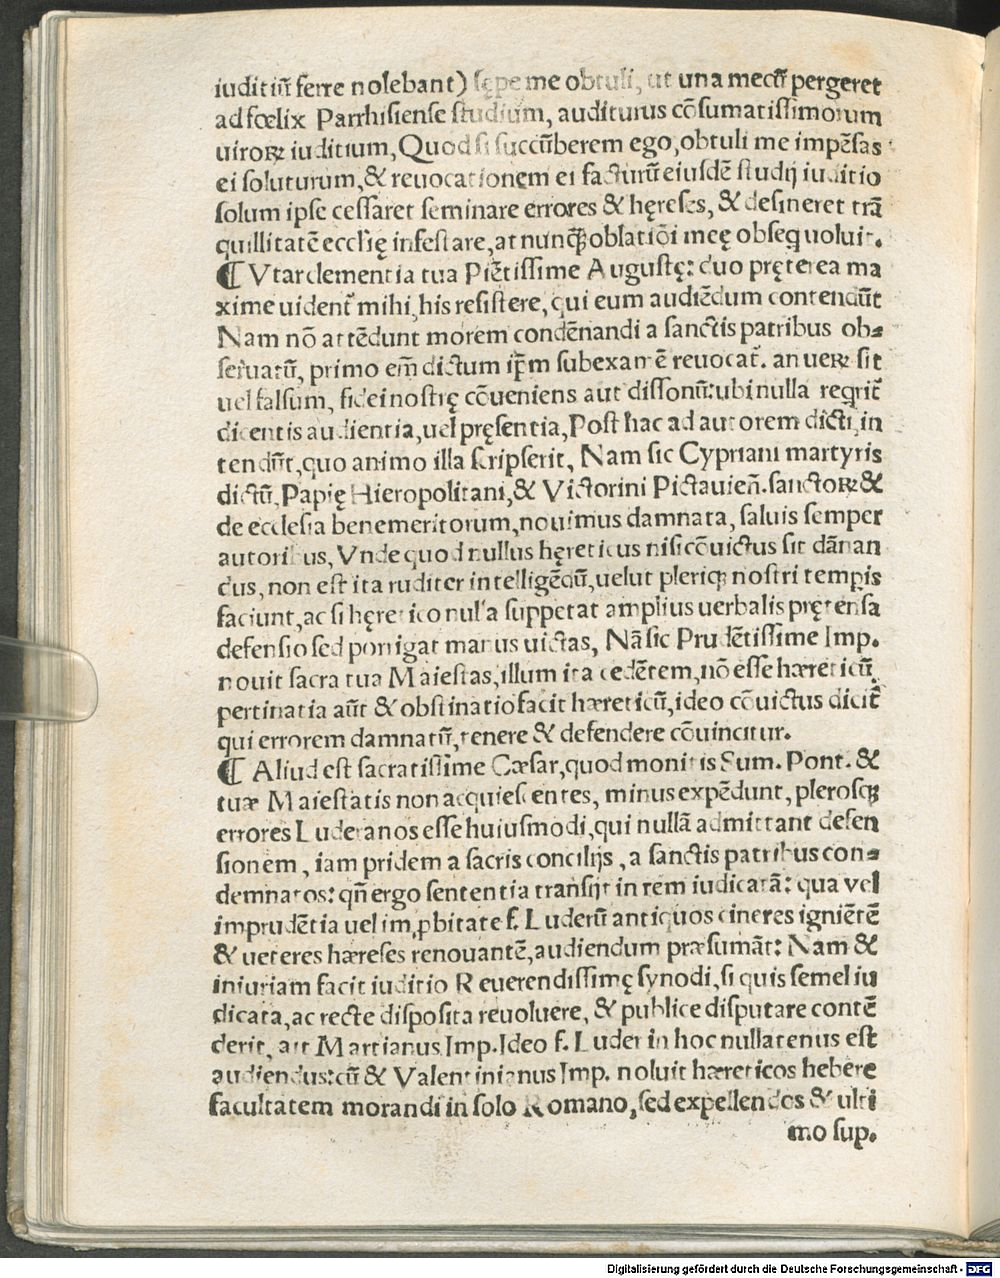 iuditiū ferre nolebant) sępe me obtuli, ut una mecū pergeret
ad fœlix Parrhisiense studium, auditurus cōsumatissimorum
uiroꝝ iuditium, Quod si succūberem ego, obtuli me impēsas
ei soluturum, & reuocationem ei facturū eiusdē studij iuditio
solum ipse cessaret seminare errores & hęreses, & desineret trā
quillitatē eccl'ię infestare, at nunꝙ̄ oblatiōi meę obseq̄ uoluit.
¶ Vtar clementia tua Piētissime Augustę: duo pręterea ma
xime uident̄ mihi, his resistere, qui eum audiēdum contendūt
Nam nō attēdunt morem condēnandi a sanctis patribus ob-
seruatū, primo em̄ dictum ip̄m sub examē reuocat̄. an ueꝝ sit
uel falsum, fidei nostrę cōueniens aut dissonū: ubi nulla reqrit̄
dicentis audientia, uel pręsentia, Post hac ad autorem dicti, in
tendūt, quo animo illa scripserit, Nam sic Cypriani martyris
dictū, Papię Hieropolitani, & Victorini Pictauień. sanctoꝝ &
de ecclesia benemeritorum, nouimus damnata, saluis semper
autoribus, Vnde quod nullus hęreticus nisi cōuictus sit dānan
dus, non est ita ruditer intelligēdū, uelut pleriqꝫ nostri tempis
faciunt, ac si hęretico nulla suppetat amplius uerbalis prętensa
defensio sed porrigat manus uictas, Nā sic Prudētissime Imp.
nouit sacra tua Maiestas, illum ita cedētem, nō esse hæreticū,
pertinatia aūt & obstinatio facit hæreticū, ideo cōuictus dicit̄
qui errorem damnatū, tenere & defendere cōuincitur.
¶ Aliud est sacratissime Cæsar, quod monitis Sum. Pont. &
tuæ Maiestatis non acquiescentes, minus expēdunt, plerosqꝫ
errores Luderanos esse huiusmodi, qui nullā admittant defen
sionem, iam pridem a sacris concilijs, a sanctis patribus con-
demnatos: qn̄ ergo sententia transijt in rem iudicatā: qua vel
imprudētia uel im ꝓbitate f. Luderū antiquos cineres igniētē
& ueteres hæreses renouantē, audiendum præsumāt: Nam &
iniuriam facit iuditio Reuerendissimę synodi, si quis semel iu
dicata, ac recte disposita reuoluere, & publice disputare contē
derit, ait Martianus Imp. Ideo f. Luder in hoc nullatenus est
audiendus: cū & Valentinianus Imp. noluit hæreticos hebere
facultatem morandi in solo Romano, sed expellendos & ulti
mo sup.
Digitalisierung gefördert durch die Deutsche Forschungsgemeinschaft - DFG